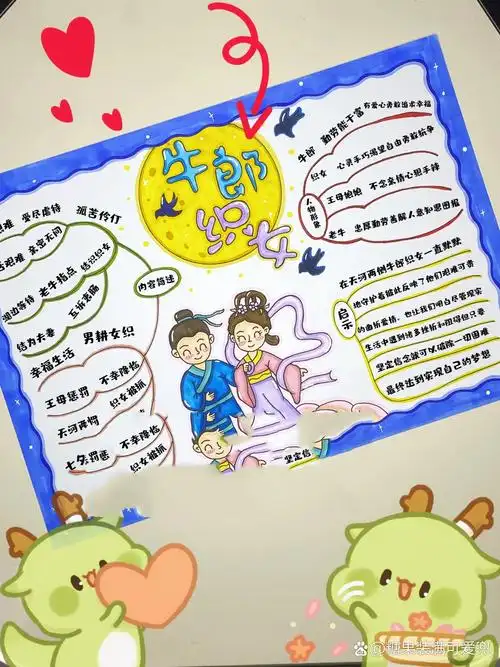 牛郎
织女
牛郎 勤劳能干富有爱心勇敢追求幸福
织女 心灵手巧渴望自由勇敢抗争
王母娘娘 不念亲情心狠手辣
老牛 忠厚勤劳善解人意知恩图报
人物形象
孤苦伶仃
爱尽虐待
亲密无间
老牛指点 结识织女
湖边等待
互诉衷肠
结为夫妻
内容简述
男耕女织
幸福生活
王母惩罚 不幸降临
织女被抓
天河两隔 不幸降临
织女被抓
七夕
启示
在天河两侧牛郎织女一直默默
地守护着彼此反映了他们艰难可贵
的曲折爱情,也让我们明白尽管现实
生活中遇到诸多挫折和困得但只要
坚定信念就可以破除一切困难
最终达到实现自己的梦想
坚定信
糖果装满可爱兜